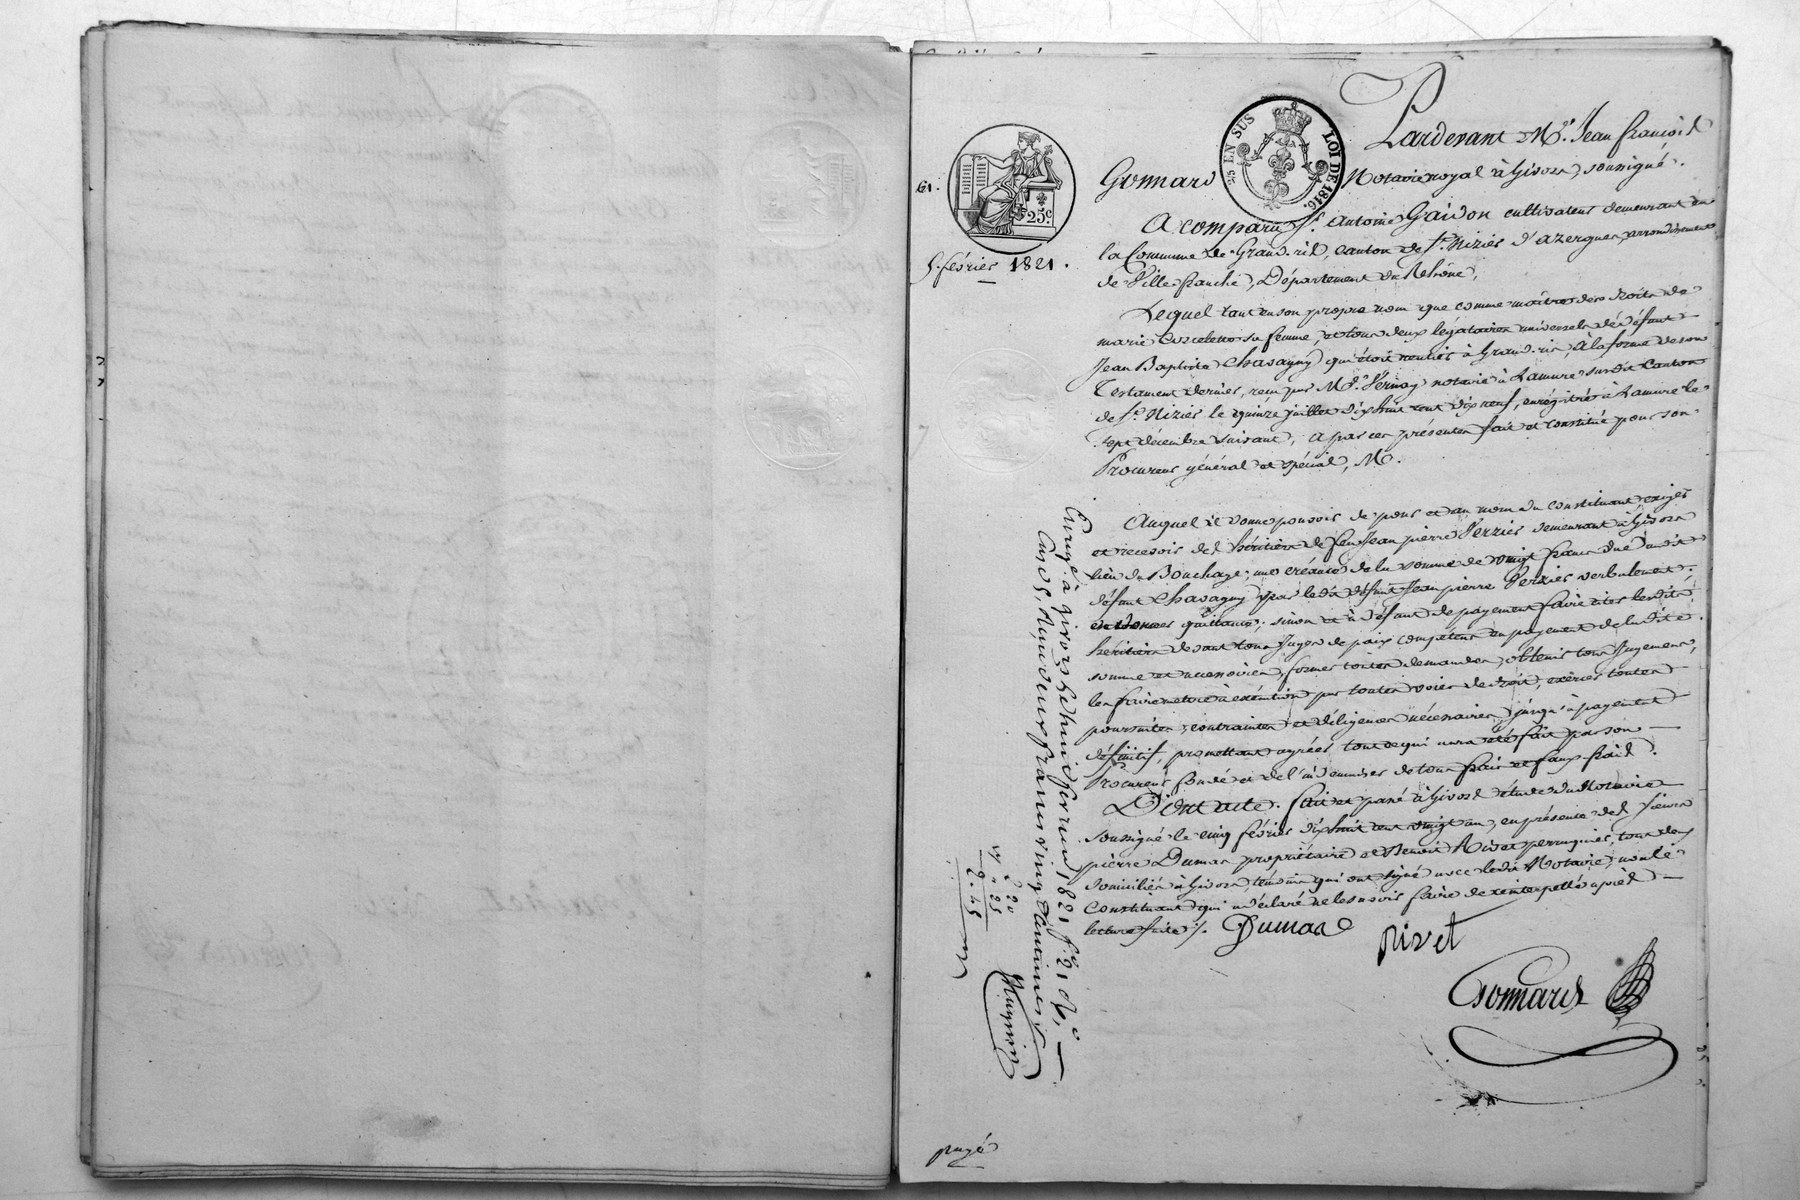 Pardevant Me. Jean François
Gonnard Notaire royal à Givors, soussigné.
25 EN SUS
LOI DE 1816.
61.
25c
5. février 1821.
A comparu Sr. Antoine Gaidon cultivateur demeurant en
la Commune de Grandris, canton de St. Nizier d'azergues, arrondissement
de Villefranche, Département du Rhône,
Lequel tant en son propre nom que comme maître des droits de
marie sa femme, et tous deux légataires universels de défunt
Jean Baptiste Chavagny qui étoit rentier à Grandris, à la forme de son
Testament dernier, reçu par Me. Vernay notaire à Lamure susdit Canton
de St. Nizier le quinze juillet dix huit cent dix neuf, enrégistré à Lamure le
sept décembre suivant, a par ces présentes fait et constitué pour son
Procureur général et spécial, M.
Auquel il donne pouvoir de pour et au nom du constituant, exiger
et recevoir des héritiers de feu Jean pierre Verrier demeurant à Givors
lieu du Bouchage, une créance de la somme de vingt francs due audit
défunt Chavagny par ledit défunt Jean pierre Verrier verbalement,
en donner quittance; sinon et à défaut de payement faire citer lesdits
héritiers devant tous Juges de paix compétens en payement de ladite
somme et accessoires, former toutes demandes, obtenir tous Jugemens,
les faire mettre à exécution par toutes voies de droit, exercer toutes
poursuites, contraintes et diligences nécessaires, jusqu'à payement
définitif, promettant agréer tout ce qui aura été fait par son
Procureur fondé et de l'indemniser de tous frais et faux frais.
Dont acte. fait et passé à Givors étude du Notaire
soussigné le cinq février dix huit cent vingt un, en présence des sieurs
pierre Dumas propriétaire et Benoit Rivet perruquier, tous deux
domiciliés à Givors, témoins qui ont signé avec ledit Notaire, non le
constituant qui a déclaré ne le savoir faire de ce interpellé après
lecture faite ./.
Dumas
Rivet
Gonnard
Enregé à Givors le huit février 1821 fo. 21 Ro. Ce.
Reçu deux francs vingt centimes
2. 20
. 25
2. 45
payé